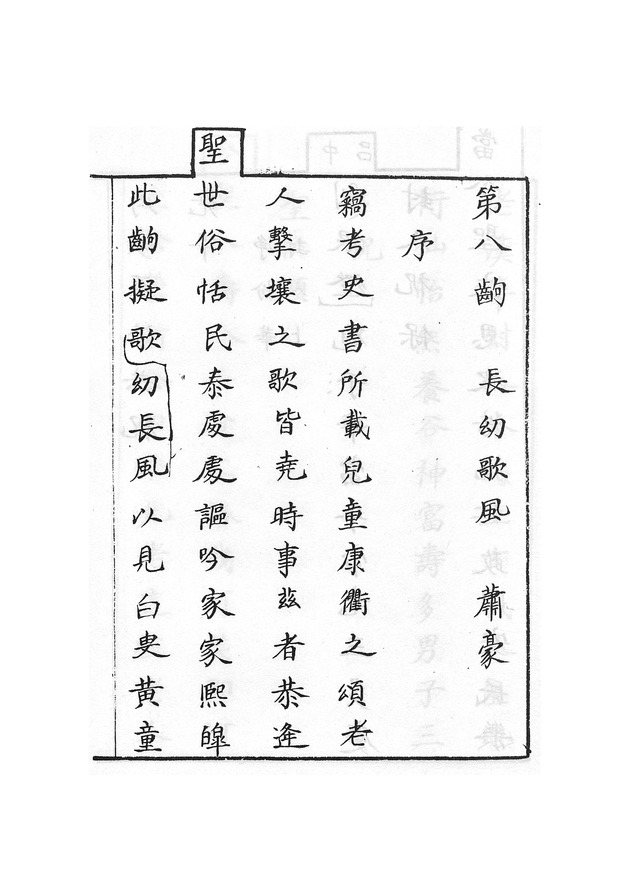 第八齣　長幼歌風　蕭豪
序
竊考史書所載兒童康衢之頌老
人擊壤之歌皆堯時事玆者恭逢
聖
世俗恬民泰處處謳吟家家熈皥
此齣擬歌幼長風以見白叟黃童